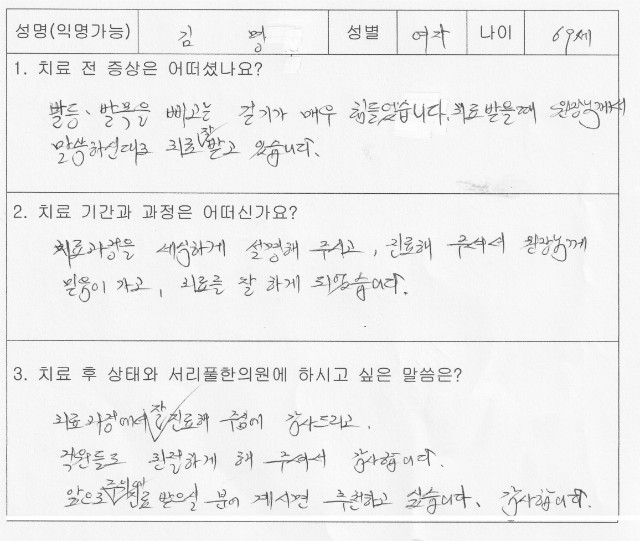 성명(익명가능) 김 명 성별 여자 나이 69세
1. 치료 전 증상은 어떠셨나요?
발등、발목을 삐고는 걷기가 매우 힘들었습니다. 치료받을때 원장님께서
말씀하신대로 치료 잘 받고 있습니다.
2. 치료 기간과 과정은 어떠신가요?
치료과정을 세심하게 설명해 주시고, 진료해 주셔서 원장님께
믿음이 가고, 치료를 잘 하게 되었습니다.
3. 치료 후 상태와 서리풀한의원에 하시고 싶은 말씀은?
치료과정에서 잘 진료해 주심에 감사드리고.
직원들도 친절하게 해 주셔서 감사합니다.
앞으로 주위에 치료 받으실 분이 계시면 추천하고 싶습니다. 감사합니다.